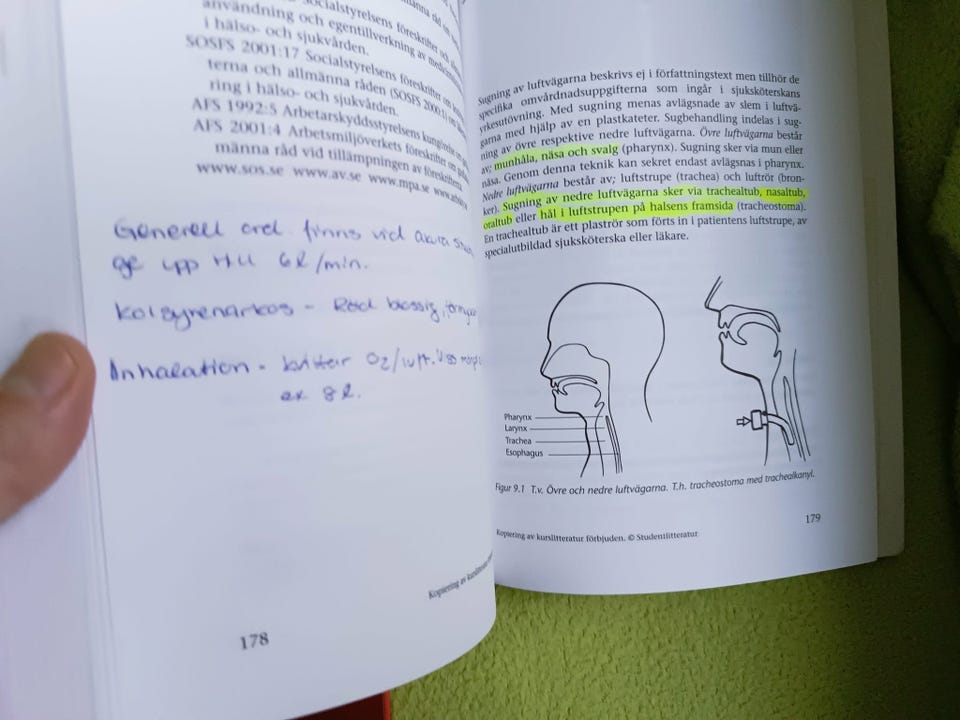 Socialstyrelsens föreskrifter och
användning och egentillverkning av
i hälso- och sjukvården.
SOSFS 2001:17 Socialstyrelsens föreskrifter om
terna och allmänna råden (SOSFS 2000:1) om
ring i hälso- och sjukvården.
AFS 1992:5 Arbetarskyddsstyrelsens kungörelse om
AFS 2001:4 Arbetsmiljöverkets föreskrifter och
männa råd vid tillämpningen av föreskrifterna
www.sos.se www.av.se www.mpa.se
Generell ord. finns vid akuta
ge upp till 6 l/min.
Kolsyrenarkos - Röd
Inhalation - O2/luft.
ex 8 l.
Kopiering av
178
Sugning av luftvägarna beskrivs ej i författningstext men tillhör de
specifika omvårdnadsuppgifterna som ingår i sjuksköterskans
yrkesutövning. Med sugning menas avlägsnade av slem i luftvä-
garna med hjälp av en plastkateter. Sugbehandling indelas i sug-
ning av övre respektive nedre luftvägarna. Övre luftvägarna består
av; munhåla, näsa och svalg (pharynx). Sugning sker via mun eller
näsa. Genom denna teknik kan sekret endast avlägsnas i pharynx.
Nedre luftvägarna består av; luftstrupe (trachea) och luftrör (bron-
ker). Sugning av nedre luftvägarna sker via trachealtub, nasaltub,
oraltub eller hål i luftstrupen på halsens framsida (tracheostoma).
En trachealtub är ett plaströr som förts in i patientens luftstrupe, av
specialutbildad sjuksköterska eller läkare.
Pharynx
Larynx
Trachea
Esophagus
Figur 9.1 T.v. Övre och nedre luftvägarna. T.h. tracheostoma med trachealkanyl.
179
Kopiering av kurslitteratur förbjuden. © Studentlitteratur